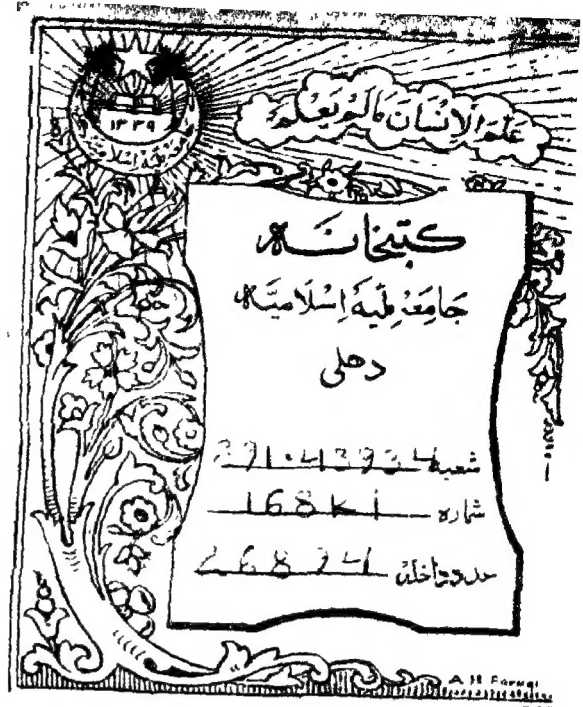 عَلَّمَ الْاِنْسَانَ مَالَمْ يَعْلَمْ
۱۳۳۹
کتبخانہ
جَامِعَہ مِلّیَہ اِسْلَامیَّہ
دهلی
شعبہ 891.43934
شمارہ 168K1
عدد داخلہ 26894
A H Faruqi